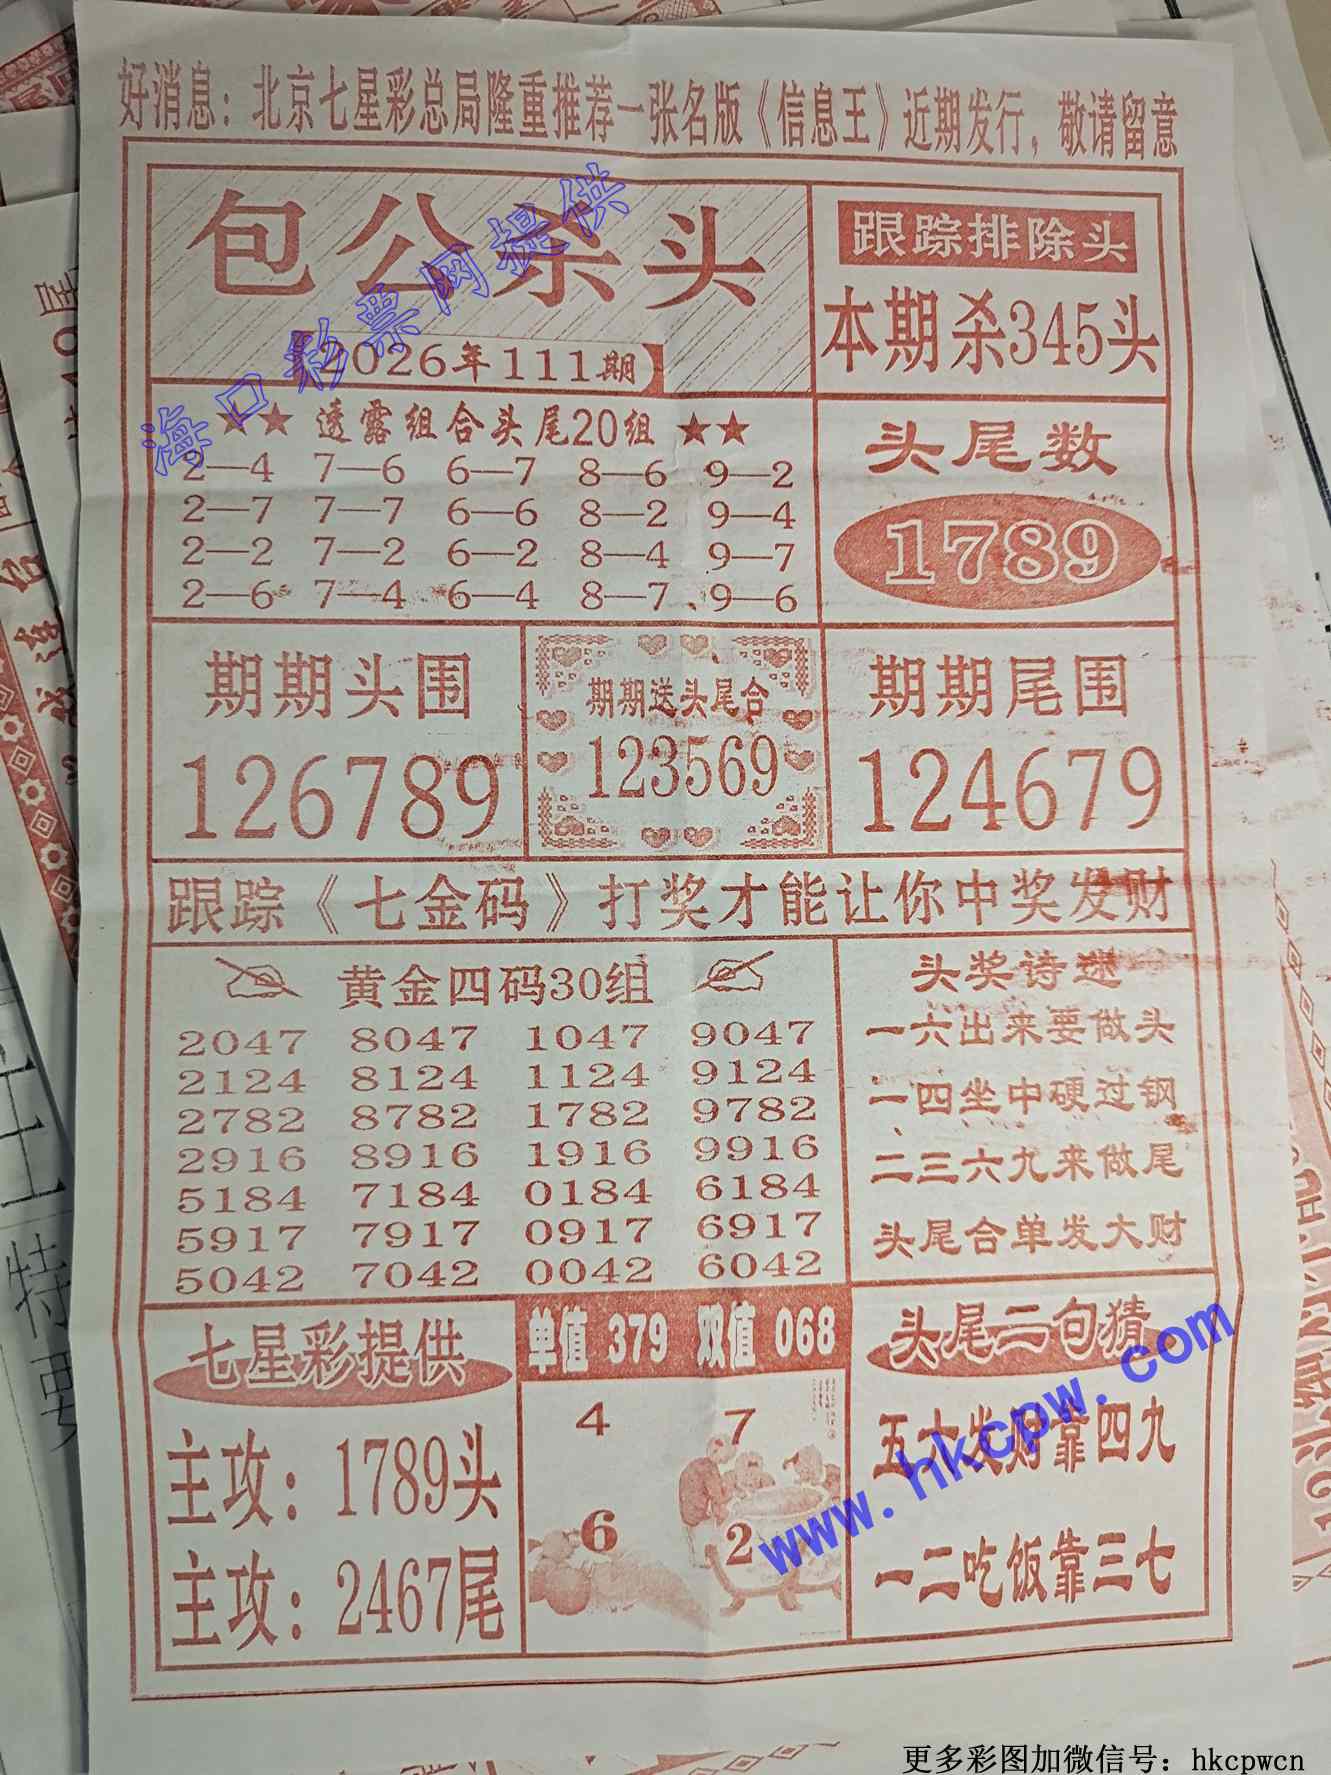 好消息：北京七星彩总局隆重推荐一张名版《信息王》近期发行，敬请留意
包公杀头
2026年111期
跟踪排除头
本期杀345头
★★ 透露组合头尾20组 ★★
2—4 7—6 6—7 8—6 9—2
2—7 7—7 6—6 8—2 9—4
2—2 7—2 6—2 8—4 9—7
2—6 7—4 6—4 8—7 9—6
头尾数
1789
期期头围
126789
期期送头尾合
123569
期期尾围
124679
跟踪《七金码》打奖才能让你中奖发财
黄金四码30组
2047 8047 1047 9047
2124 8124 1124 9124
2782 8782 1782 9782
2916 8916 1916 9916
5184 7184 0184 6184
5917 7917 0917 6917
5042 7042 0042 6042
头奖诗迷
一六出来要做头
一四坐中硬过钢
二三六九来做尾
头尾合单发大财
七星彩提供
主攻：1789头
主攻：2467尾
单值 379 双值 068
4 7
6 2
头尾二句猜
五十发财靠四九
一二吃饭靠三七
海口彩票网提供
www.hkcpw.com
更多彩图加微信号：hkcpwcn